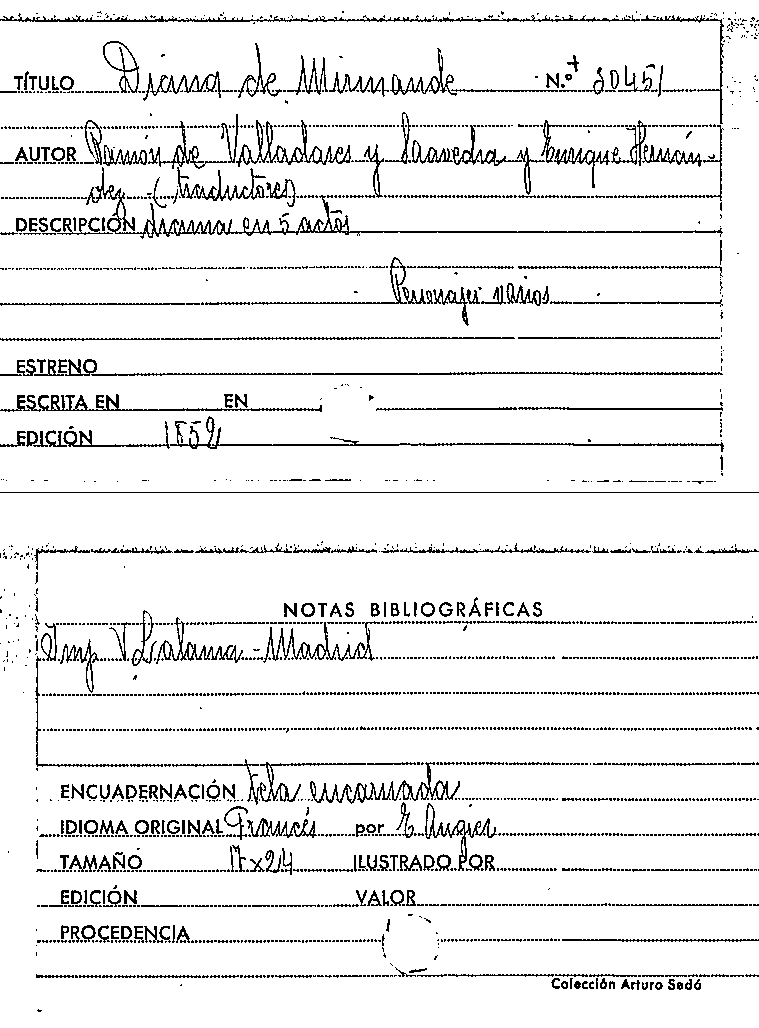 TÍTULO Diana de Mirmande N.º+ 30451
AUTOR Ramón de Valladares y Saavedra y Enrique Hernán-
dez - (traductores)
DESCRIPCIÓN drama en 5 actos
Personajes varios
ESTRENO
ESCRITA EN EN
EDICIÓN 1852
NOTAS BIBLIOGRÁFICAS
Imp V Lalama - Madrid
ENCUADERNACIÓN tela encarnada
IDIOMA ORIGINAL Francés por E. Augier
TAMAÑO 17x24 ILUSTRADO POR
EDICIÓN VALOR
PROCEDENCIA
Colección Arturo Sedó